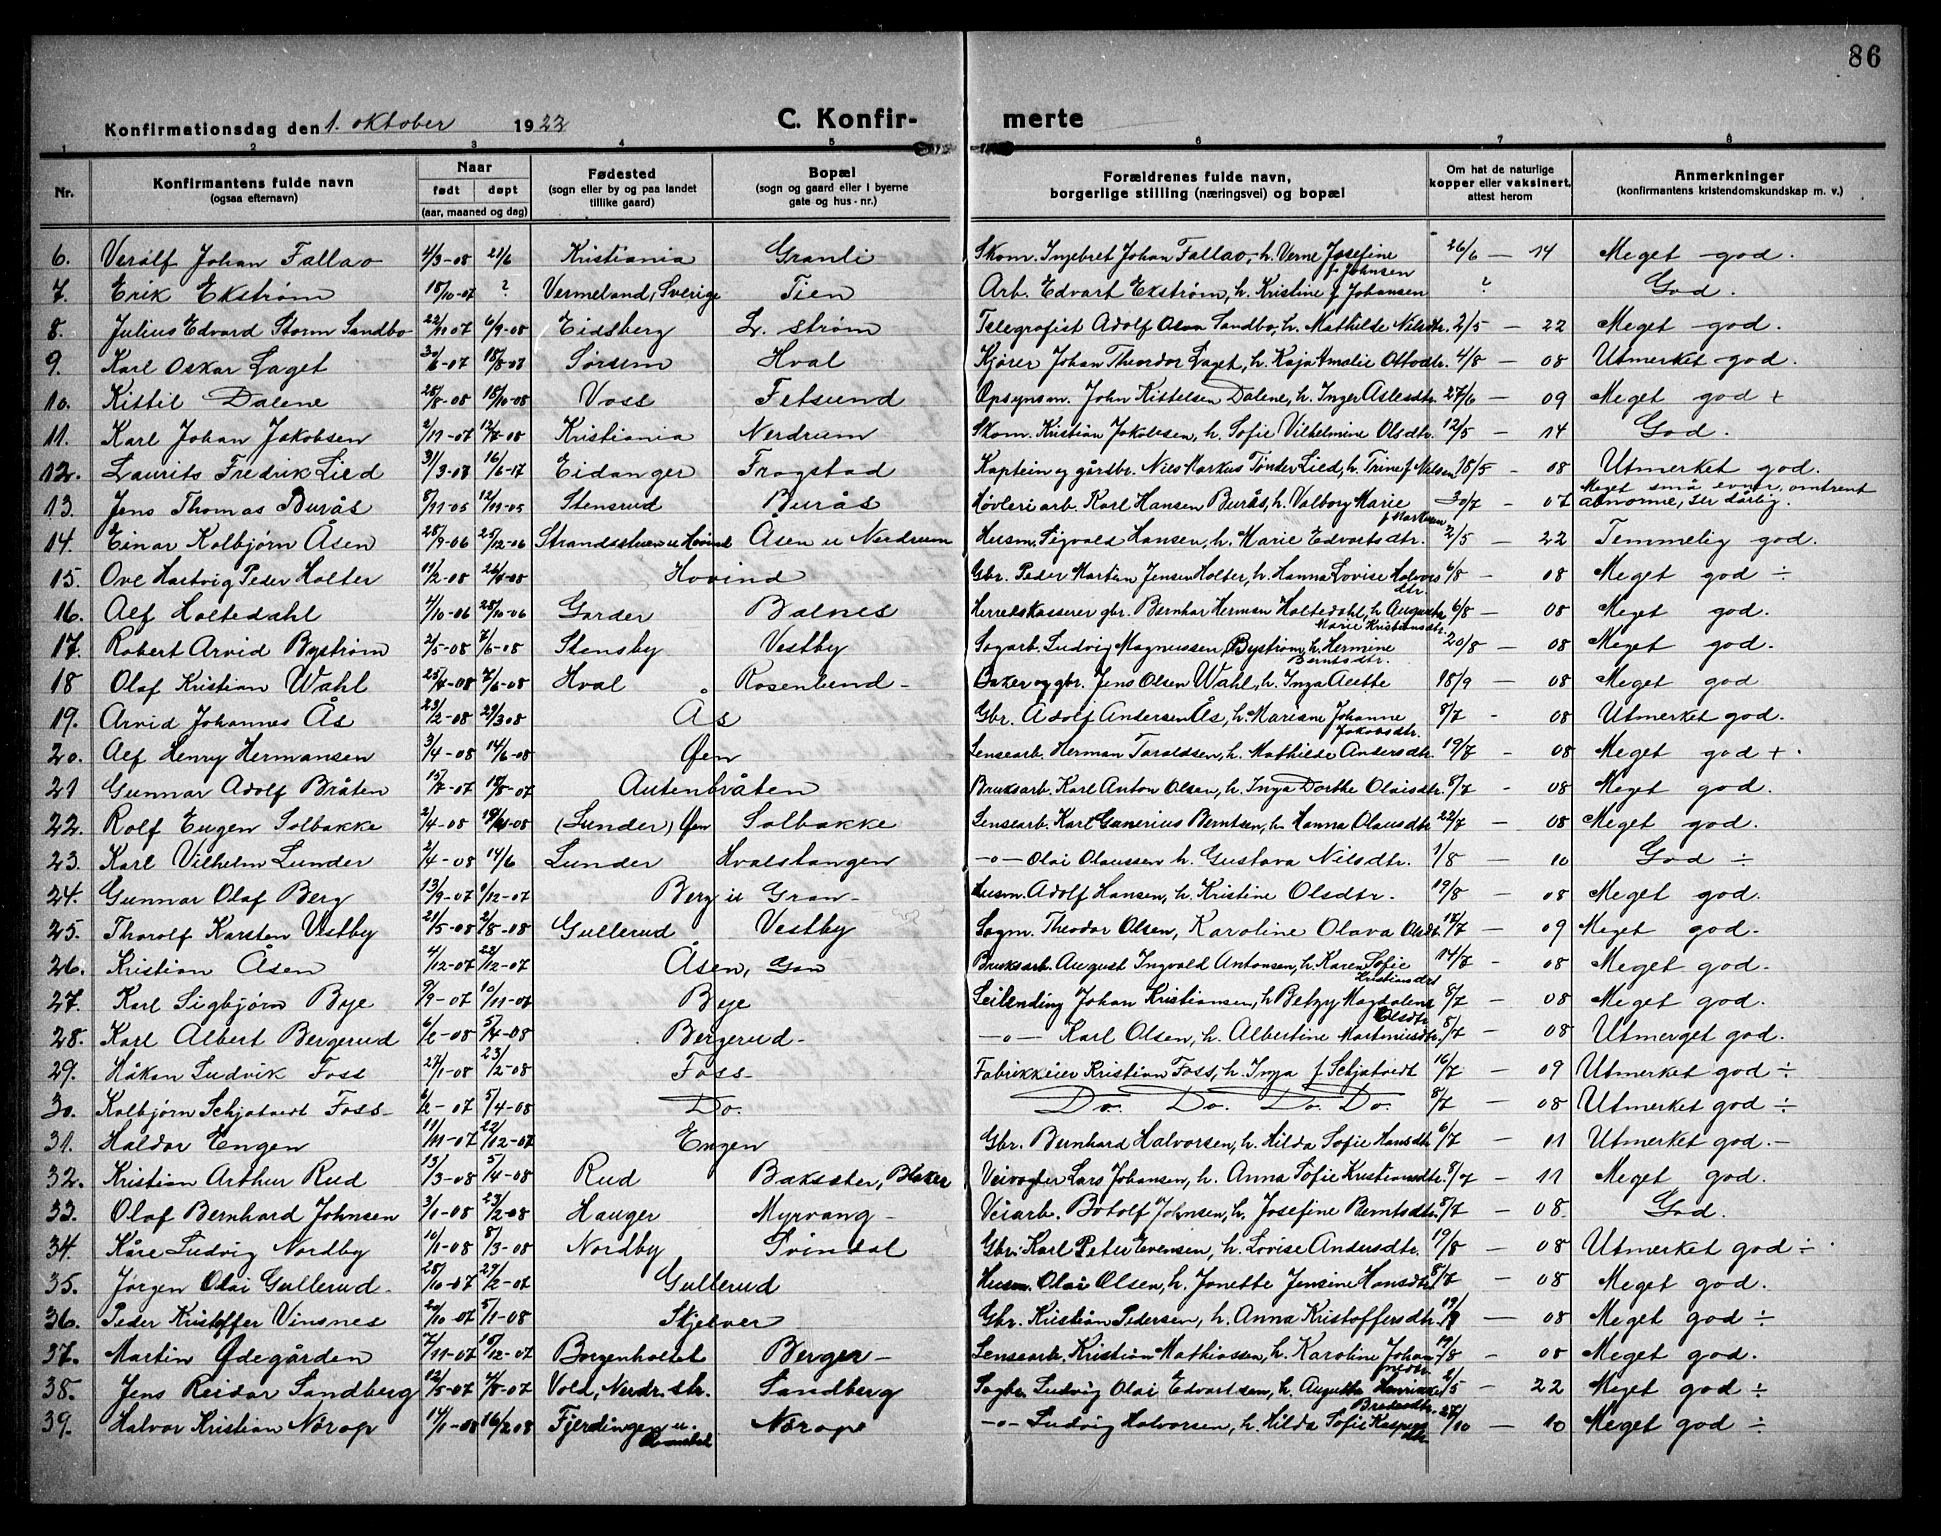 86
Konfirmationsdag den 1. oktober 1922 C. Konfir- merte
1 2 3 4 5 6 7 8
Nr. Konfirmantens fulde navn (ogsaa efternavn) Naar født døpt (aar, maaned og dag) Fødested (sogn eller by og paa landet tillike gaard) Bopæl (sogn og gaard eller i byerne gate og hus-nr.) Forældrenes fulde navn, borgerlige stilling (næringsvei) og bopæl Om hat de naturlige kopper eller vaksinert, attest herom Anmerkninger (konfirmantens kristendomskundskap m. v.)
6. Verólf Johan Fallao 4/3-08 21/6 Kristiania Granli Skom. Ingebret Johan Fallao, h. Verne Josefine f. Johnsen 26/6 — 14 Meget god.
7. Erik Ekstrøm 18/10-07 ? Vermeland, Sverige Tien Arb. Edvart Ekstrøm, h. Kristine f Johansen ? God.
8. Julius Edvard Storm Sandbo 22/11 07 6/9-08 Eidsberg L. strøm Telegrafist Adolf Olan Sandbo, h. Mathilde Nilsdtr. 2/5 — 22 Meget god.
9. Karl Oskar Laget 30/6-07 18/8-07 Sørum Hval Kjører Johan Theodor Laget, h. Kaja Amalie Ottodtr. 4/8 — 08 Utmerket god.
10. Kittil Dalene 28/8-08 18/10-08 Voss Fetsund Opsynsm. John Kittelsen Dalene, h. Inger Aslesdtr. 27/6 — 09 Meget god +
11. Karl Johan Jakobsen 2/11-07 12/8-08 Kristiania Nerdrum Skom. Kristian Jakobsen, h. Sofie Vilhelmine Olsdtr. 12/5 — 14 God.
12. Laurits Fredrik Lied 31/3-08 16/6-17 Eidanger Frogstad Kaptein og gårdbr. Nils Markus Tønder Lied, h. Trine f. Nilsen 18/5 - 08 Utmerket god.
13. Jens Thomas Burås 8/11-05 12/11-05 Stensrud Burås Høvleri arb. Karl Hansen Burås, h. Valborg Marie f Markusen 30/7 — 07 Meget små evner, omtrent abnorme, ser dårlig.
14. Einar Kolbjørn Åsen 28/9-06 25/12-06 Strandastuen u Hovind Åsen u Nerdrum Husm. Sigvald Hansen, h. Marie Edvartsdtr. 2/5 — 22 Temmelig god.
15. Ove Hartvig Peder Holter 11/2-08 26/8-08 Hovind Gbr. Peder Martin Jensen Holter, h. Hanna Lovise Halvorsdtr. 6/8 — 08 Meget god ÷
16. Alf Holtedahl 4/10-06 28/10-06 Garder Balnes Herredskasserer gbr. Bernhar Herman Holtedahl, h. Augusta Marie Kristiansdtr. 6/8 — 08 Meget god.
17. Robert Arvid Bystrøm 2/5-08 7/6-08 Stensby Vestby Sagarb. Ludvig Magnussen Bystrøm, h. Hermine Berntsdtr. 20/8 — 08 Meget god.
18 Olaf Kristian Wahl 25/4-08 7/6-08 Hval Rosenlund - Baker og gbr. Jens Olsen Wahl, h. Inga Alette 18/9 — 08 Meget god
19. Arvid Johannes Ås 23/2-08 29/3 08 Ås Gbr. Adolf Andersen Ås, h. Mariane Johanne Jakobsdtr. 8/7 - 08 Utmerket god.
20. Alf Henry Hermansen 3/4-08 14/6-08 Øen Lensearb. Herman Taraldsen, h. Mathilde Andersdtr. 19/7 - 08 Meget god +.
21 Gunnar Adolf Bråten 15/7-07 18/8-07 Autenbråten Bruksarb. Karl Anton Olsen, h. Inga Dorthe Olaisdtr. 8/7 - 08 Meget god.
22. Rolf Eugen Solbakke 2/4-08 19/4-08 (Lunder) Øen Solbakke Lensearb. Karl Gunerius Berntsen, h. Hanna Olausdtr 22/7 — 08 Meget god.
23. Karl Vilhelm Lunder 2/4-08 14/6 Lunder Hvalstangen —o— Olai Olaussen h. Gustava Nilsdtr. 1/8 — 10 God ÷
24. Gunnar Olaf Berg 13/9-07 1/12-07 Berg u Gran- Husm. Adolf Hansen, h. Kristine Olsdtr. 19/8 — 08 Meget god.
25. Thorolf Karsten Vestby 21/5-08 2/8-08 Gullerud Vestby Sagm. Theodor Olsen, Karoline Olava Olsdtr. 17/7 — 09 Meget god.
26. Kristian Åsen 4/12-07 22/12-07 Åsen, Gan Bruksarb. August Ingvald Antonsen, h. Karen Sofie Kristiansdtr 14/7 - 08 Meget god.
27. Karl Sigbjørn Bye 9/9-07 10/11-07 Bye Leilending Johan Kristiansen, h Betzy Magdalena Olsdtr 8/7 — 08 Meget god.
28. Karl Albert Bergerud 6/2-08 5/4-08 Bergerud- —o— Karl Olsen, h. Albertine Martiniusdtr. 8/7 — 08 Utmerget god.
29. Håkon Ludvik Foss 27/1-08 23/2-08 Foss- Fabrikkeier Kristian Foss, h. Inga f Schjatvedt 16/7 — 09 Utmerket god ÷
30. Kolbjørn Schjatvedt Foss- 6/2-07 5/4-08 Do. Do. Do. Do. Do. 8/7 — 08 Utmerket god ÷
31. Haldor Engen 11/11-07 22/12-07 Engen Gbr. Bernhard Halvorsen, h. Hilda Sofie Hansdtr 6/7 — 11 Utmerket god.-
32. Kristian Arthur Rud 13/3-08 5/4-08 Rud Baksæter, Blaker Veivogter Lars Johansen, h. Anna Sofie Kristiansdtr. 8/7 - 11 Meget god.
33. Olaf Bernhard Johnsen 3/1-08 23/2-08 Hauger Myrvang - Veiarb. Botolf Johnsen, h. Josefine Berntsdtr. 8/7 - 08. God.
34. Kåre Ludvig Nordby 10/1-08 8/3-08 Nordby Svindal Gbr. Karl Peter Evensen, h. Lovise Andersdtr. 19/8 - 08 Utmerket god ÷
35. Jørgen Olai Gullerud. 28/10-07 29/2-07 Gullerud Husm. Olai Olsen, h. Jonette Jensine Hansdtr 8/7 - 08 Meget god.
36. Peder Kristoffer Vinsnes 20/10-07 5/1-08 Skjelver Gbr. Kristian Pedersen, h. Anna Kristoffersdtr. 19/8 — 08 Meget god ÷
37. Martin Ødegården 7/11-07 15/12-07 Borgenholtet Berger- Lensearb. Kristian Mathiassen, h. Karoline Johannesdtr 19/8 - 08 Meget god.
38. Jens Reidar Sandberg 12/5-07 4/8-07 Vold, Nerdr. str. Sandberg Sagbr. Ludvig Olai Edvartsen, h. Augusta Henrikke Bredesdtr. 2/5 — 22 Meget god ÷
39. Halvor Kristian Nårop 14/1-08 16/2 08 Fjerdingen u. Nårop —o— Ludvig Halvorsen, h. Hilda Sofie Kaspersdtr 27/10 — 10 Meget god ÷